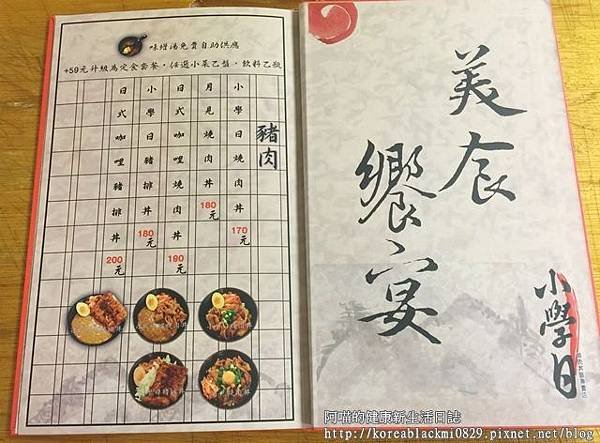 味增湯免費自助供應
+59元升級為定食套餐，任選小菜乙盤，飲料乙瓶
豬肉
小學日燒肉丼 170元
月見燒肉丼 180元
日式咖哩燒肉丼 190元
小學日豬排丼 180元
日式咖哩豬排丼 200元
美食
饗宴
小學日
阿喵的健康新生活日誌
http://koreablackmi0829.pixnet.net/blog